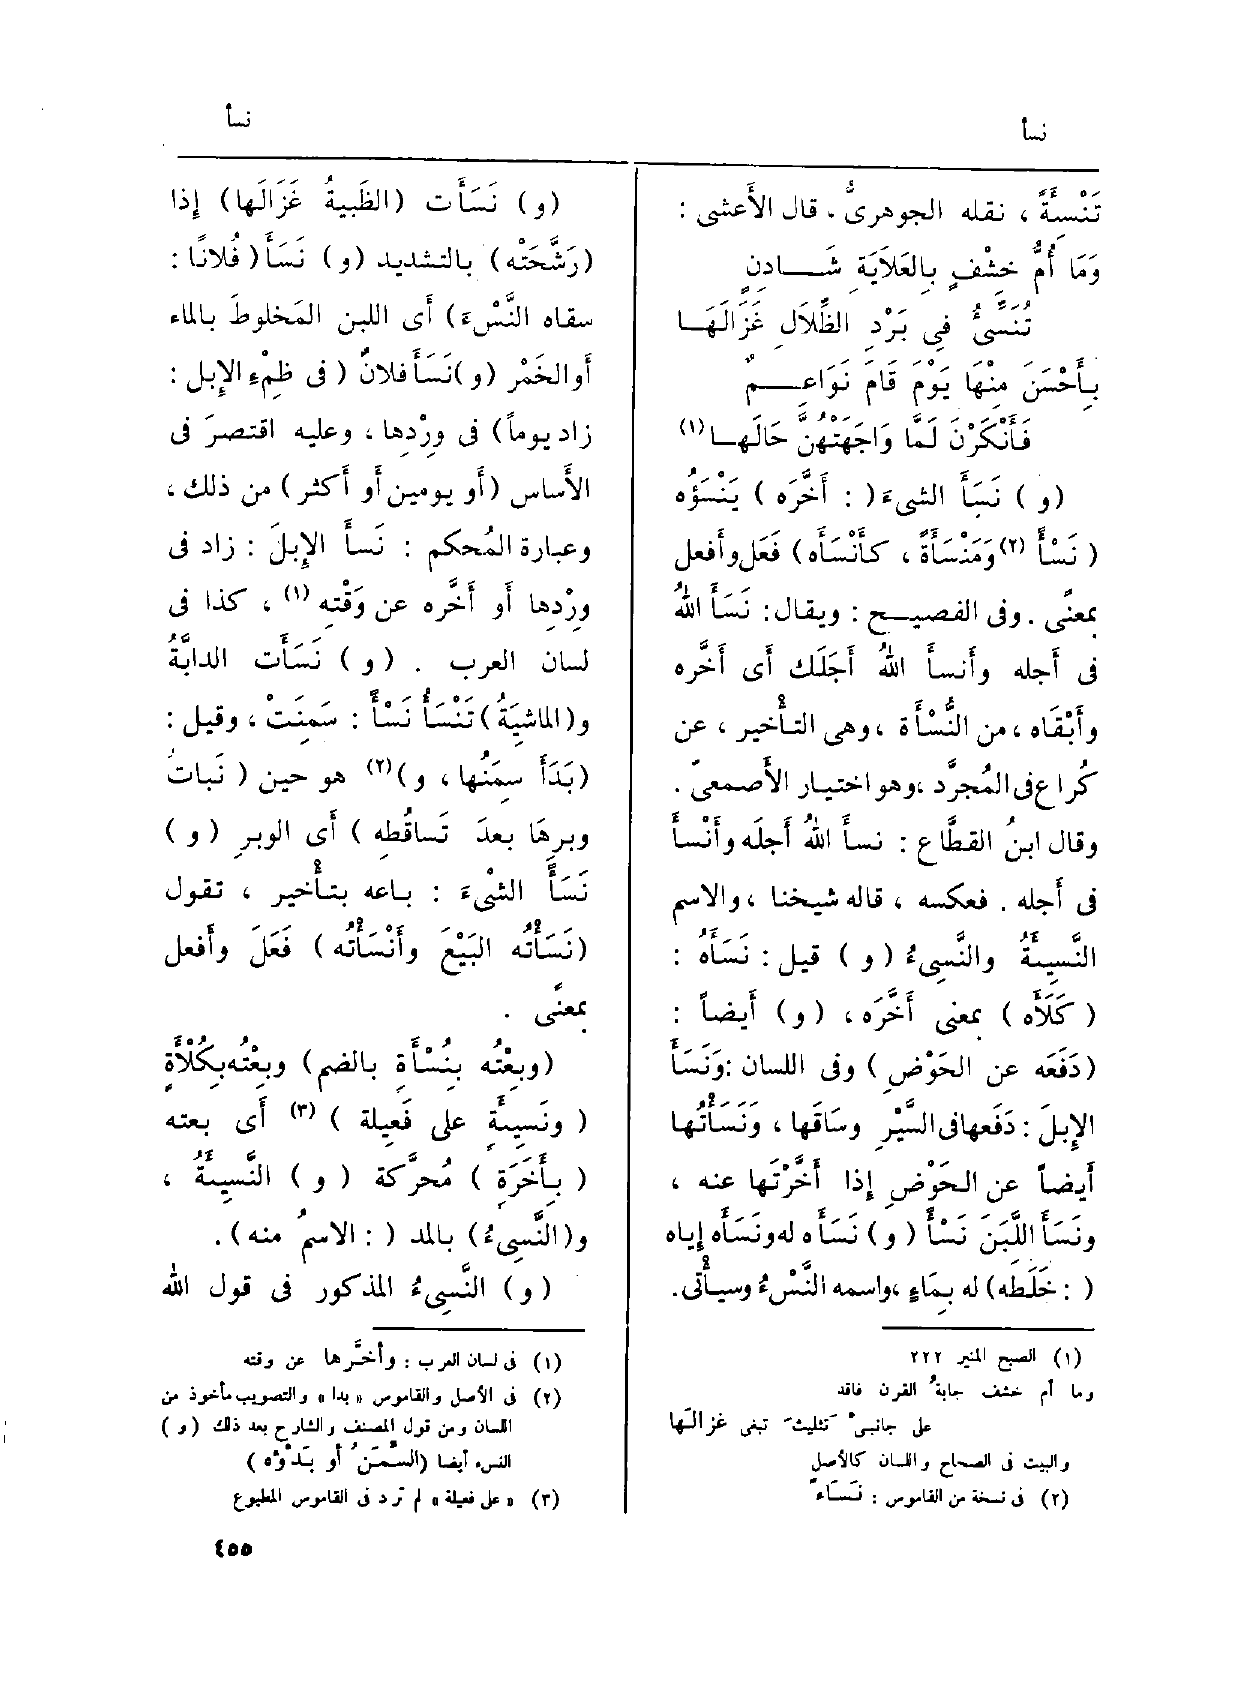 نسأ
نسأ
تَنْسِئَةً ، نقله الجوهرىُّ . قال الأَعشى :
وَمَا أُمُّ خِشْفٍ بِالعَلَايَةِ شَـــادِنٍ
تُنَسِّئُ فِى بَرْدِ الظِّلَالِ غَزَالَهَــا
بِأَحْسَنَ مِنْهَا يَوْمَ قَامَ نَوَاعِـــمٌ
فَأَنْكَرْنَ لَمَّا وَاجَهَتْهُنَّ حَالَهـا (١)
(و) نَسَأَ الشىءَ ( : أَخَّرَه ) يَنْسَؤُه
( نَسْأً (٢) وَمَنْسَأَةً ، كأَنْسَأَه) فَعَل وأفعل
بمعنًى . وفى الفصيـــح : ويقال : نَسَأَ اللهُ
فى أَجله وأَنسأَ اللهُ أَجَلَك أَى أَخَّره
وأَبْقَاه ، من النُّسْأَة ، وهى التأْخير ، عن
كُراع فى المُجرَّد ، وهو اختيار الأَصمعىّ .
وقال ابنُ القطَّاع : نسأَ اللهُ أَجله وأَنْسأَ
فى أَجله . فعكسه ، قاله شيخنا ، والاسم
النَّسِيئَةُ والنَّسِىءُ (و) قيل : نَسَأَهُ :
( كَلَأَه ) بمعنى أَخَّرَه ، (و) أَيضاً :
(دَفَعَه عن الحَوْضِ ) وفى اللسان : وَنَسَأَ
الإِبلَ : دَفَعها فى السَّيْرِ وسَاقَها ، وَنَسَأْتُها
أَيضاً عن الحَوْضِ إذا أَخَّرْتَها عنه ،
ونَسَأَ اللَّبَنَ نَسْأً (و) نَسَأَه له ونَسَأَه إياه
( : خَلَطَه) له بِمَاءٍ ، واسمه النَّسْءُ وسيأْتى .
(١) الصبح المنير ٢٢٢
وما أم خشف جابةُ القرن فاقد
على جانبىْ تثليث تبغى غزالَها
والبيت فى الصحاح واللسان كالأصل
(٢) فى نسخة من القاموس : نَسَاءً
(و) نَسَأَت (الظَّبيةُ غَزَالَها) إذا
(رَشَّحَتْه) بالتشديد (و) نَسَأَ (فُلانًا :
سقاه النَّسْءَ) أَى اللبن المَخلوطَ بالماء
أو الخَمْر (و) نَسَأَ فلانٌ ( فى ظِمْءِ الإبل :
زاد يوماً) فى وِرْدها ، وعليه اقتصرَ فى
الأَساس (أَو يومين أَو أَكثر) من ذلك ،
وعبارة المُحكم : نَسأَ الإِبلَ : زاد فى
وِرْدها أَو أَخَّره عن وَقْتِه (١) ، كذا فى
لسان العرب . (و) نَسَأَت الدابَّةُ
و(الماشِيَةُ) تَنْسَأُ نَسْأً : سَمِنَتْ ، وقيل :
(بَدَأَ سِمَنُها ، و) (٢) هو حين ( نَباتَ
وبرِهَا بعدَ تَساقُطِه ) أَى الوبرِ (و)
نَسَأَ الشىْءَ : باعه بتأْخير ، تقول
(نَسَأْتُه البَيْعَ وأَنْسَأْتُه ) فَعَلَ وأَفعل
بمعنًى .
(وبِعْتُه بِنُسْأَة بالضم) وبِعْتُه بِكُلْأَةٍ
( ونَسِيئَةٍ على فَعِيلة ) (٣) أَى بعته
( بِأَخَرَةٍ ) مُحرَّكة (و) النَّسِيئَةُ ،
و(النَّسِىءُ) بالمد ( : الاسمُ منه) .
(و) النَّسِىءُ المذكور فى قول الله
(١) فى لسان العرب : وأخَّرها عن وقته
(٢) فى الأصل والقاموس « بدا » والتصويب مأخوذ من
اللسان ومن قول المصنف والشارح بعد ذلك (و)
النسء أيضا (السَّمَنُ أو بَدْؤُه )
(٣) « على فعيلة » لم ترد فى القاموس المطبوع
٤٥٥